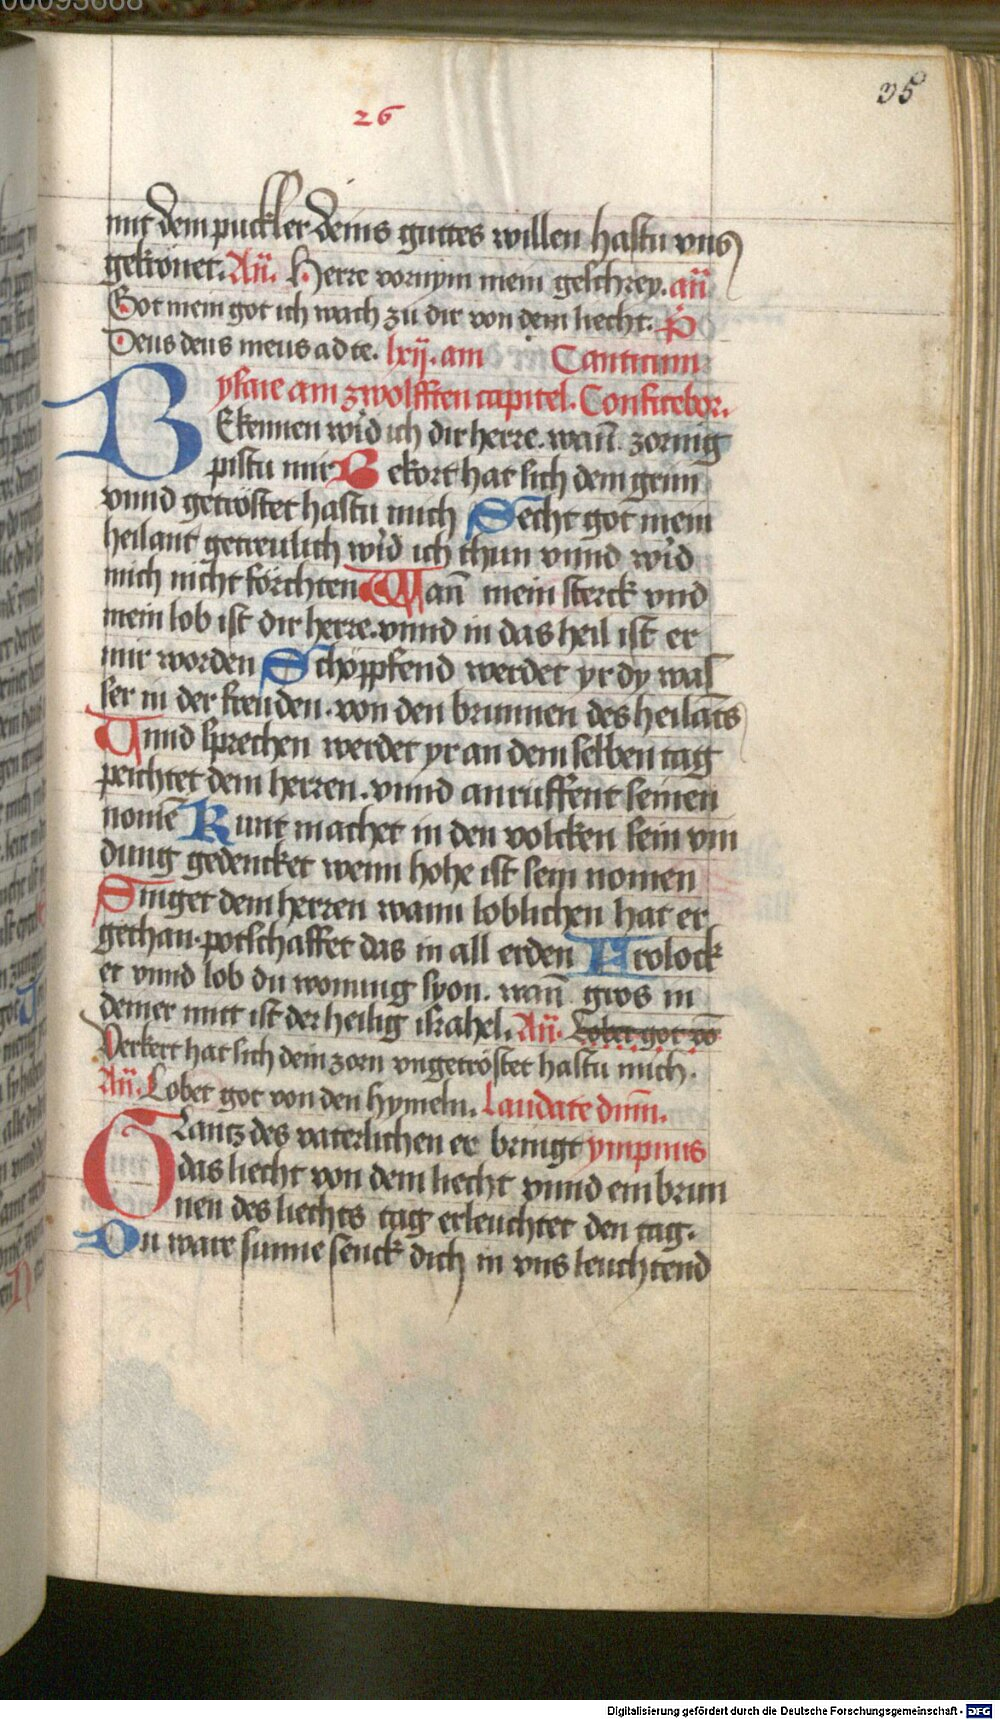 00093668
35
26
mit dem puckler deins guttes willen hastu vns
gekronet. Añ. Herre vornym mein geschrey. añ
Got mein got ich wach zu dir von dem liecht. P
Deus deus meus ad te. lxij. am Canticum
ysaie am zwolfften capitel. Confitebor.
BEkennen wid ich dir herre. wañ. zornig
pistu mir Bekort hat sich dein grim
vnnd getröstet hastu mich Secht got mein
heilant getreulich wid ich thun vnnd wid
mich nicht förchten Wañ mein sterck vnd
mein lob ist dir herre. vnnd in das heil ist er
mir worden Schöppfend werdet yr dy was
ser in der freuden. von den brunnen des heilāts
Vnnd sprechen werdet yr an dem selben tag
peichtet dem herren. vnnd anruffent seinen
nomē Kunt machet in den volcken sein vin
dung gedencket wenn hohe ist sein nomen
Singet dem herren wann loblichen hat er
gethan. potschaffet das in all erden Frolock
et vnnd lob du wonung syon. wañ gros in
deiner mitt ist der heilig israhel. Añ. Lobet got vō
Verkert hat sich dein zorn vngetröstet hastu mich.
Añ. Lobet got von den hymeln. Laudate dnm̄.
Glantz des vaterlichen er bringt ympnus
das liecht von dem liecht vnnd ein brun
nen des liechts tag erleuchtet den tag.
Du ware sunne senck dich in vns leuchtend
Digitalisierung gefördert durch die Deutsche Forschungsgemeinschaft - DFG